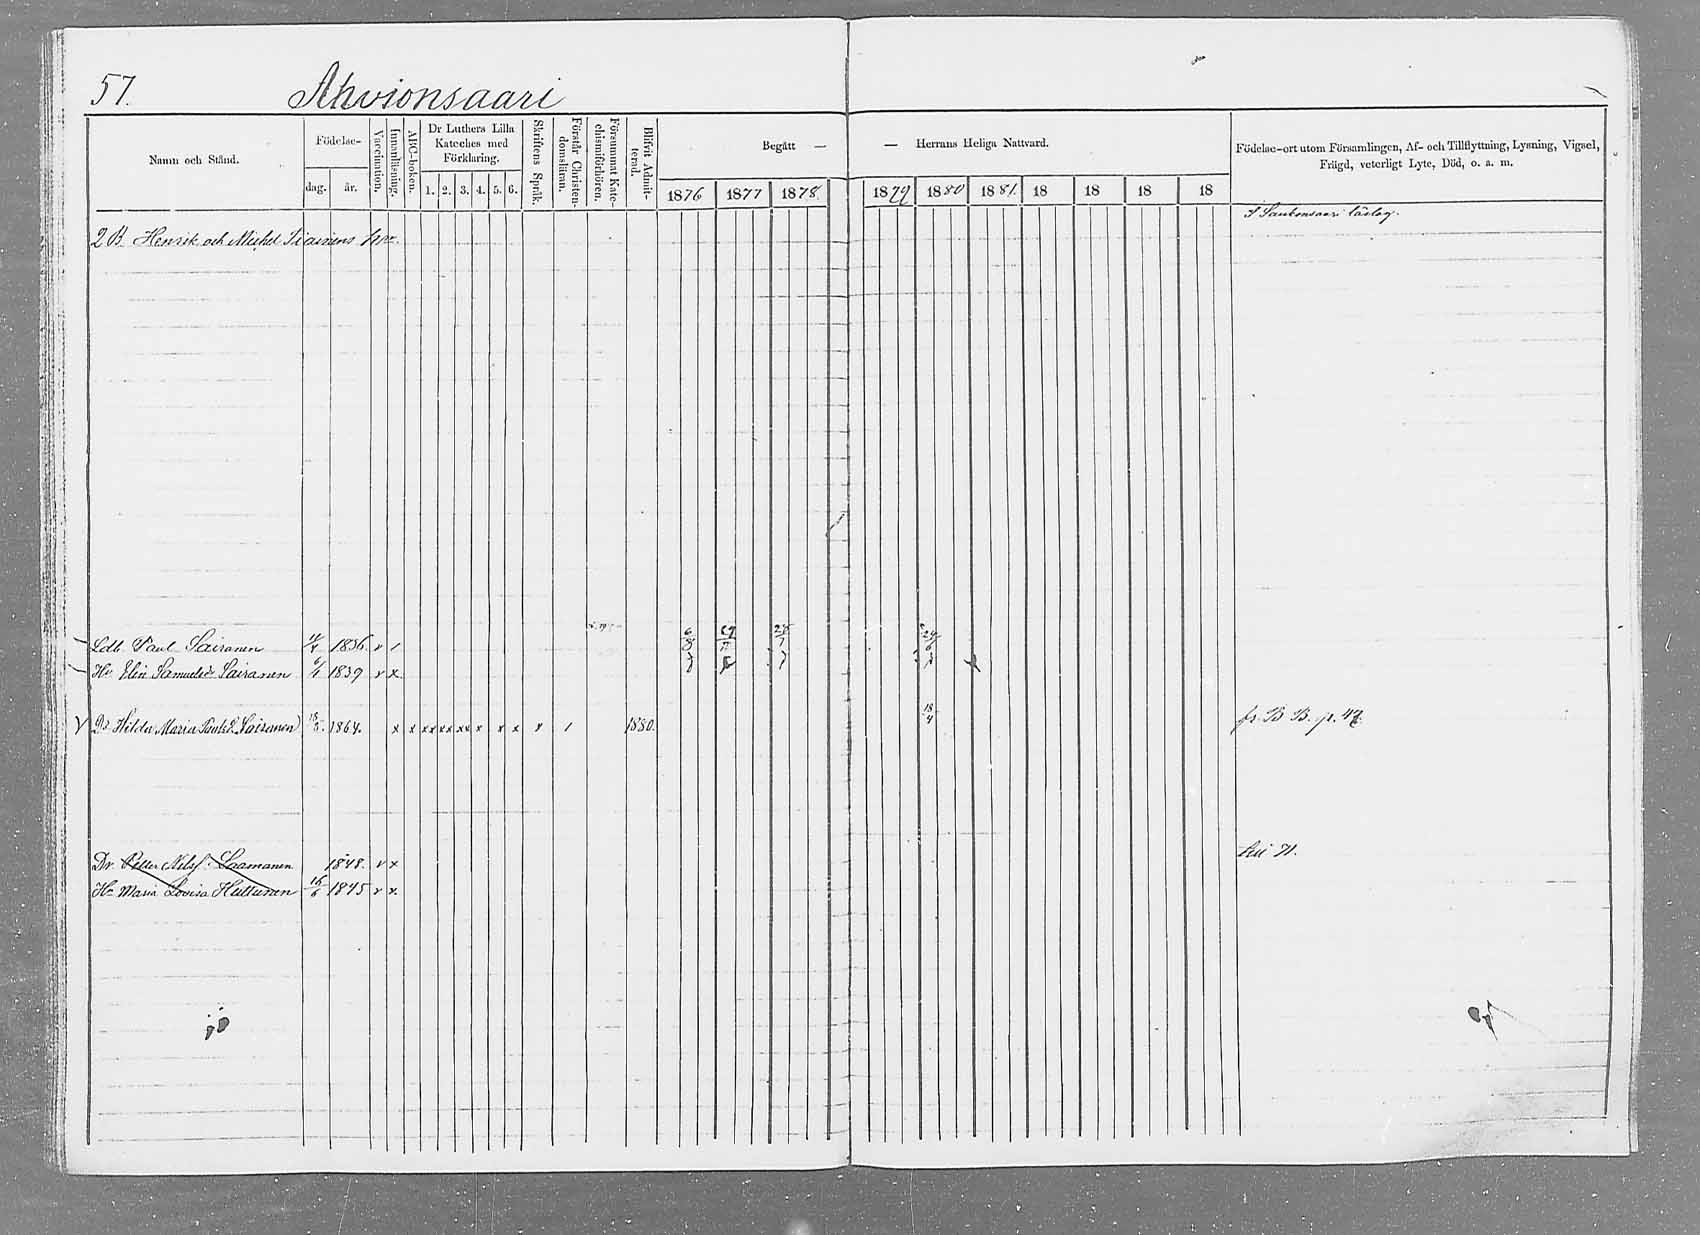 57. Ahvionsaari
Namn och Stånd.
Födelse-
dag. år.
Vaccination.
Innanläsning.
ABC-boken.
Dr Luthers Lilla
Kateches med
Förklaring.
1. 2. 3. 4. 5. 6.
Skriftens Språk.
Förstår Christen-
domsläran.
Försummat Kate-
chismiförhören.
Blifvit Admit-
terad.
Begått — — Herrans Heliga Nattvard.
1876 1877 1878 1879 1880 1881 18 18 18 18
Födelse-ort utom Församlingen, Af- och Tillflyttning, Lysning, Vigsel,
Frägd, veterligt Lyte, Död, o. a. m.
2 B. Henrik och Michel
Ldb. Paul Sairanen 1836. v 1
Hu Elin Samuelsdr Sairanen 6/4 1839 v x
v Dr Hilda Maria Sairanen 1864. x x xx xx xx x x x x 1 1880. 18/4 fr. B B. p. 47.
Dr. Petter Nilsf. Laamanen 1848. v x
Hu Maria Lovisa Huttunen 16/6 1845 v x.